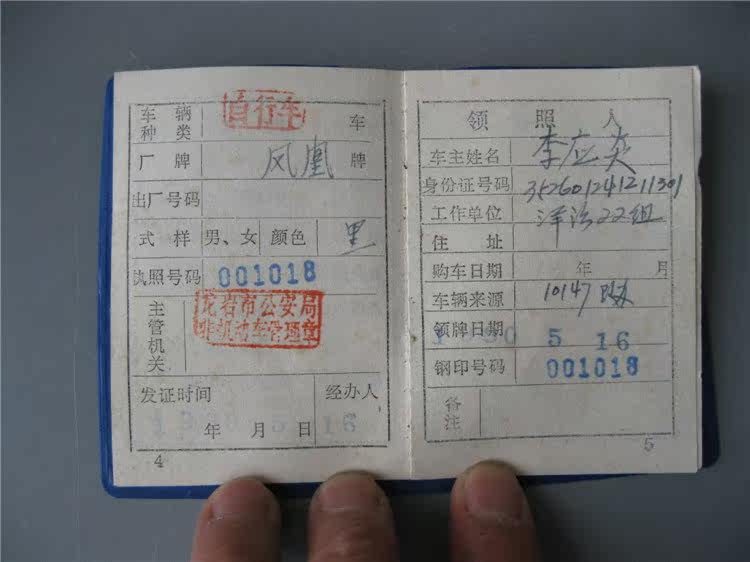 车辆种类 自行车 车
厂牌 凤凰 牌
出厂号码
式样 男、女 颜色 黑
执照号码 001018
主管机关 龙岩市公安局
非机动车管理章
发证时间 经办人
年 月 日 16
4
领照人
车主姓名 李应炎
身份证号码 352601241211301
工作单位 22组
住址
购车日期 年 月
车辆来源 10147
领牌日期 90 5 16
钢印号码 001018
备注
5